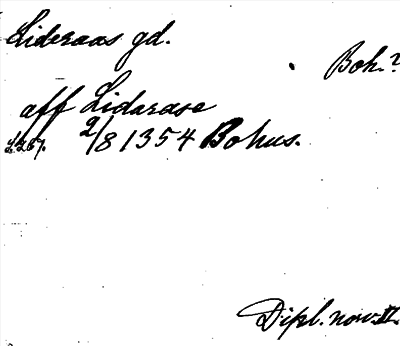 Lideraas gd.
Boh.?
aff Lidarase
2/8 1354 Bohus.
Dipl. norv. II.